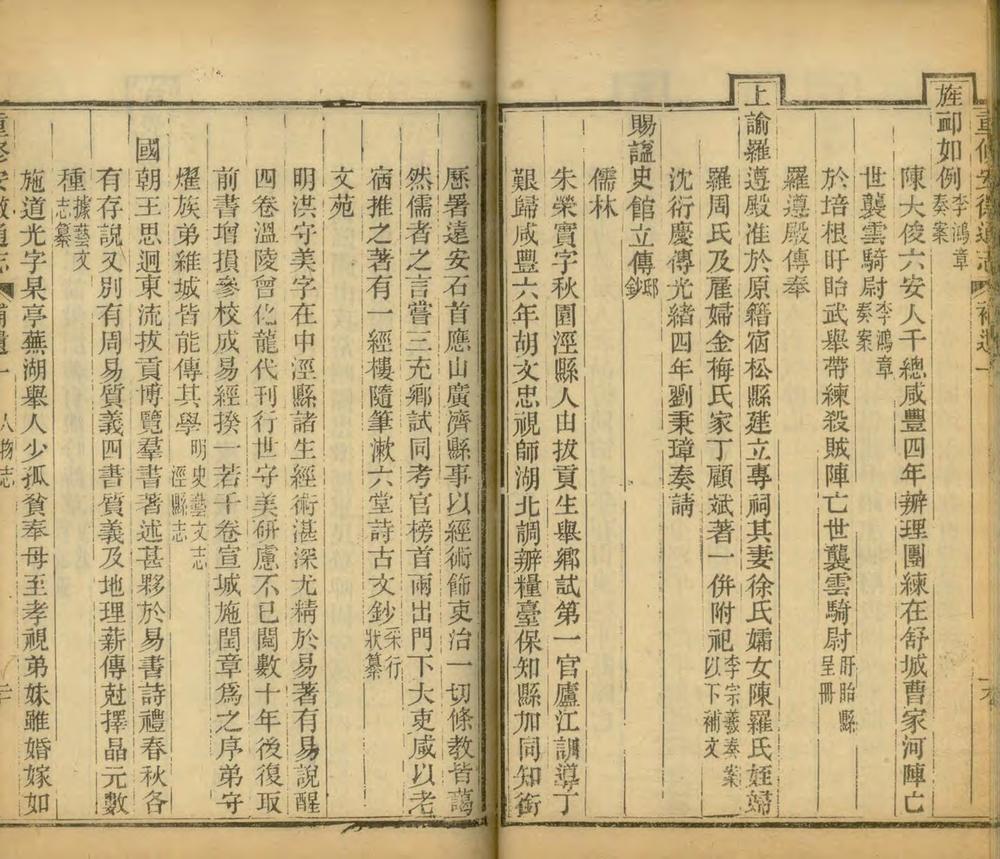 重修安徽通志 補遺一
旌卹如例李鴻章奏案
陳大俊六安人千總咸豐四年辦理團練在舒城曹家河陣亡
世襲雲騎尉李鴻章奏案
於培根盱眙武舉帶練殺賊陣亡世襲雲騎尉盱眙縣呈冊
羅遵殿傳奉
上諭羅遵殿准於原籍宿松縣建立專祠其妻徐氏孀女陳羅氏姪婦
羅周氏及雇婦金梅氏家丁顧斌著一併附祀李宗羲奏案以下補文
沈衍慶傳光緒四年劉秉璋奏請
賜諡史館立傳邸鈔
儒林
朱榮實字秋園涇縣人由拔貢生舉鄉試第一官廬江訓導丁
艱歸咸豐六年胡文忠視師湖北調辦糧臺保知縣加同知銜
歷署遠安石首應山廣濟縣事以經術飾吏治一切條教皆藹
然儒者之言嘗三充鄉試同考官榜首兩出門下大吏咸以老
宿推之著有一經樓隨筆漱六堂詩古文鈔采行狀纂
文苑
明洪守美字在中涇縣諸生經術湛深尤精於易著有易說醒
四卷溫陵曾化龍代刊行世守美研慮不已閱數十年後復取
前書增損參校成易經揆一若干卷宣城施閏章爲之序弟守
燿族弟維城皆能傳其學明史藝文志涇縣志
國朝王思迥東流拔貢博覽羣書著述甚夥於易書詩禮春秋各
有存說又別有周易質義四書質義及地理薪傳尅擇晶元數
種據藝文志纂
施道光字杲亭蕪湖舉人少孤貧奉母至孝視弟妹雖婚嫁如
重修安徽通志 補遺一 人物志